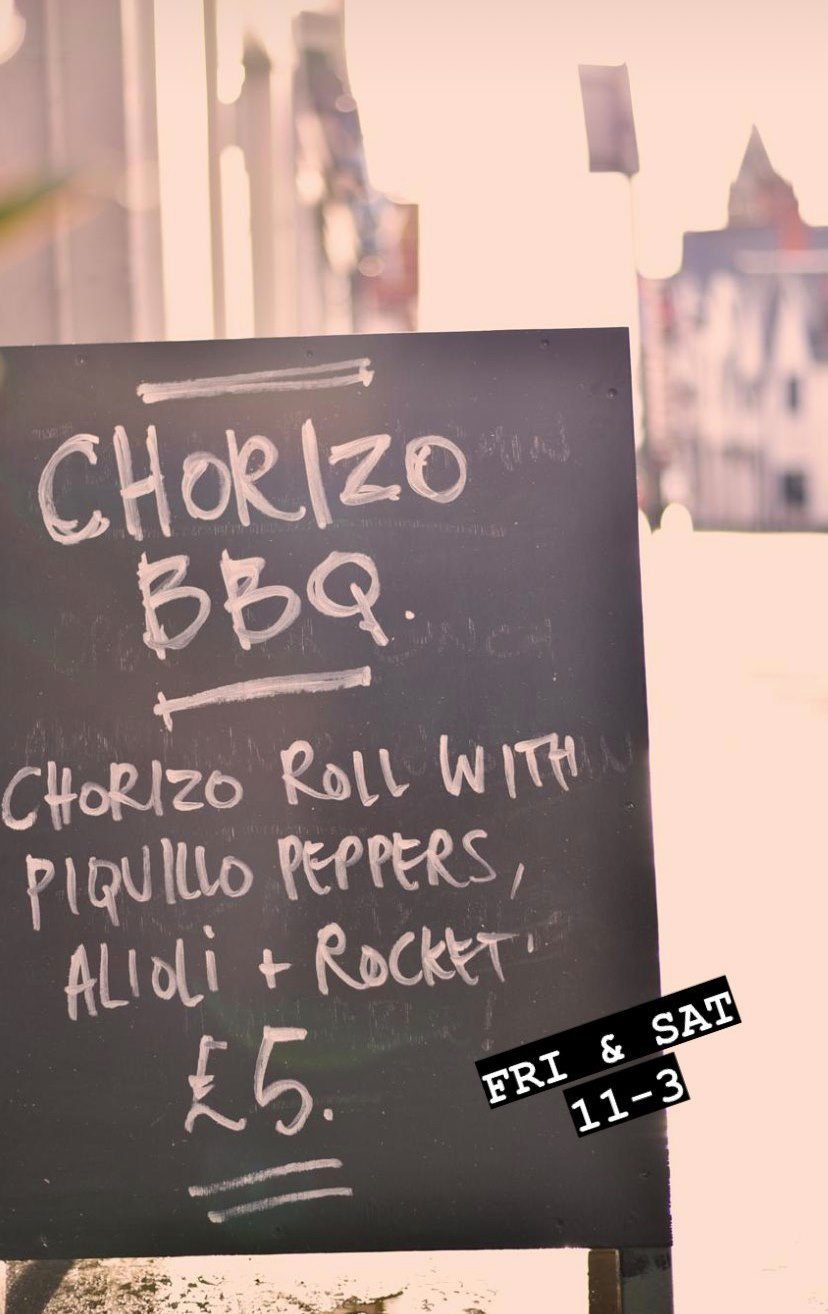 CHORIZO
BBQ.
CHORIZO ROLL WITH
PIQUILLO PEPPERS,
ALIOLI + ROCKET
£5.
FRI & SAT
11-3